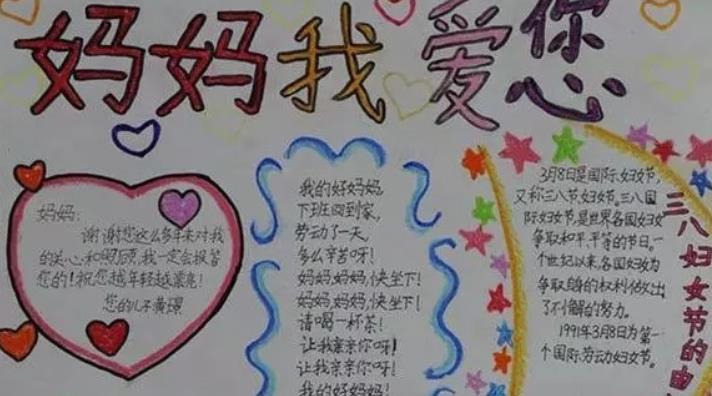 妈妈我爱您
妈妈:
谢谢您这么多年来对我
的关心和照顾,我一定会报答
您的!祝您越年轻越漂亮!
您的儿子黄璟
我的好妈妈,
下班回到家,
劳动了一天,
多么辛苦呀!
妈妈,妈妈,快坐下!
妈妈,妈妈,快坐下!
请喝一杯茶!
让我亲亲你呀!
让我亲亲你呀!
我的好妈妈!
3月8日是国际妇女节,
又称三八节,妇女节。三八国
际妇女节,是世界各国妇女
争取和平、平等的节日。一
个世纪以来,各国妇女为
争取自身的权利做出
了不懈的努力。
1991年3月8日为第一
个国际劳动妇女节。
三八妇女节的由